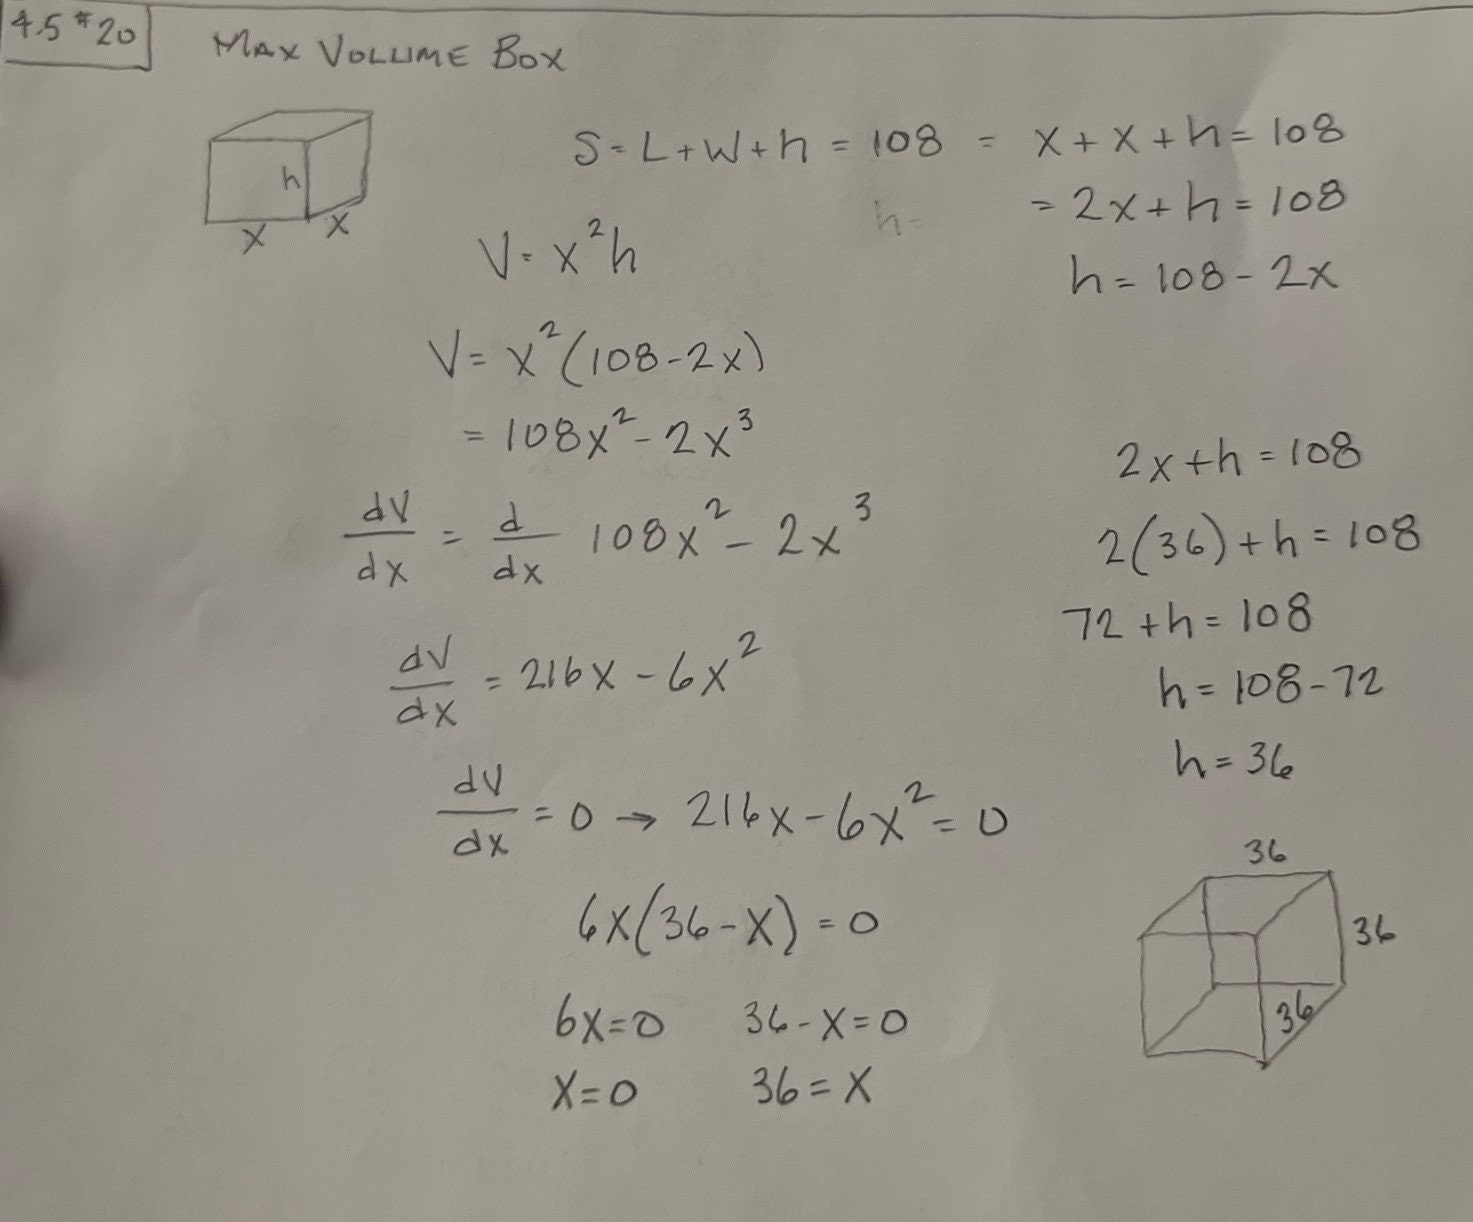 4.5 #20
MAX VOLUME BOX
h
x x
S = L + W + h = 108 = x + x + h = 108
h = = 2x + h = 108
h = 108 - 2x
V = x²h
V = x²(108 - 2x)
= 108x² - 2x³
dV/dx = d/dx 108x² - 2x³
dV/dx = 216x - 6x²
dV/dx = 0 → 216x - 6x² = 0
6x(36 - x) = 0
6x = 0 36 - x = 0
x = 0 36 = x
2x + h = 108
2(36) + h = 108
72 + h = 108
h = 108 - 72
h = 36
36
36
36